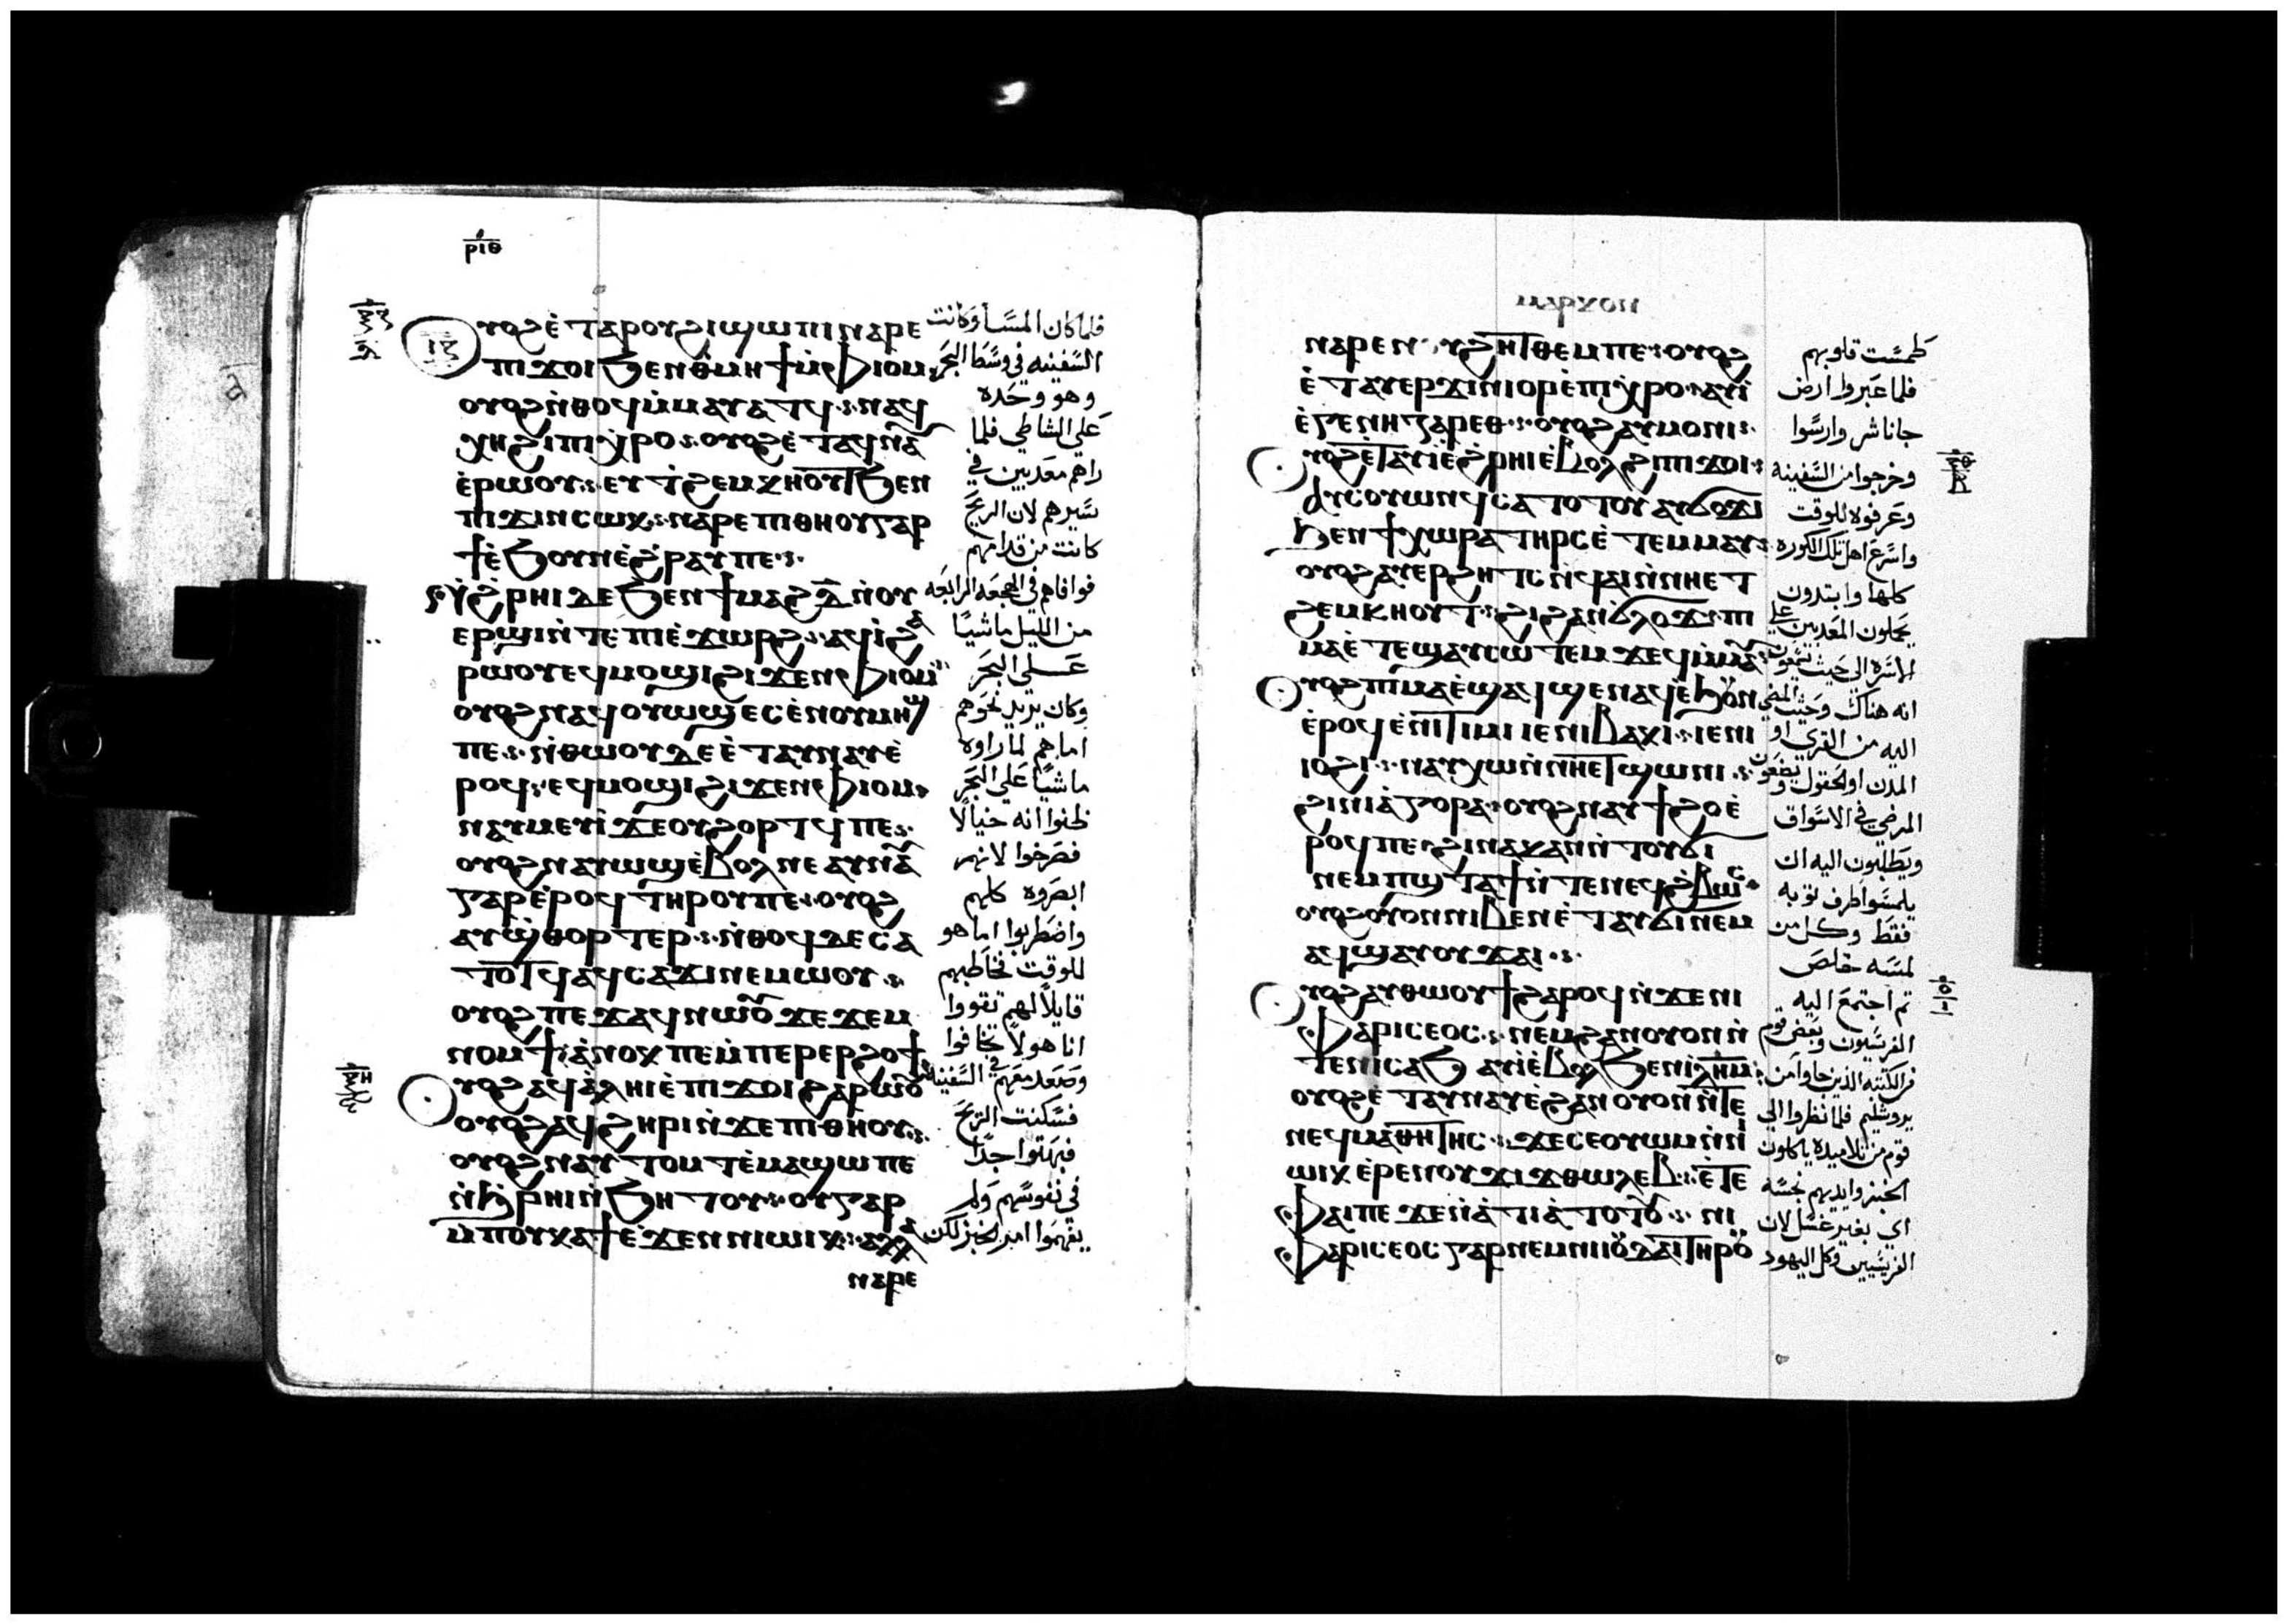 ⲣⲓⲑ
ⲟⲩⲟϩ ⲉ̀ⲧⲁⲣⲟⲩϩⲓ ϣⲱⲡⲓ ⲛⲁⲣⲉ
ⲡⲓϫⲟⲓ ϧⲉⲛ ⲑⲙⲏϯ ⲙ̀ⲫⲓⲟⲙ
ⲟⲩⲟϩ ⲛ̀ⲑⲟϥ ⲙ̀ⲙⲁⲩⲁⲧϥ ⲛⲁϥ
ⲭⲏ ϩⲓ ⲡⲓⲭ̀ⲣⲟ ⲟⲩⲟϩ ⲉ̀ⲧⲁϥⲛⲁⲩ
ⲉ̀ⲣⲱⲟⲩ ⲉⲩⲧϩⲉⲙⲕⲏⲟⲩⲧ ϧⲉⲛ
ⲡⲓϫⲓⲛⲥⲱⲕ ⲛⲁⲣⲉ ⲡⲓⲑⲏⲟⲩ ⲅⲁⲣ
ϯ ⲉ̀ϧⲟⲩⲛ ⲉ̀ϩⲣⲁⲩ ⲡⲉ
ⲛ̀ϩⲣⲏⲓ ⲇⲉ ϧⲉⲛ ϯⲙⲁϩⲇ̅ ⲛ̀ⲟⲩ
ⲉⲣϣⲓ ⲛ̀ⲧⲉ ⲡⲓⲉ̀ϫⲱⲣϩ ⲁϥⲓ̀ ϩⲁ
ⲣⲱⲟⲩ ⲉϥⲙⲟϣⲓ ϩⲓϫⲉⲛ ⲫⲓⲟⲙ
ⲟⲩⲟϩ ⲛⲁϥⲟⲩⲱϣ ⲉⲥⲉⲛⲟⲩ
ⲡⲉ ⲛ̀ⲑⲱⲟⲩ ⲇⲉ ⲉ̀ⲧⲁⲩⲛⲁⲩ ⲉ̀
ⲣⲟϥ ⲉϥⲙⲟϣⲓ ϩⲓϫⲉⲛ ⲫⲓⲟⲙ
ⲛⲁⲩⲙⲉⲩⲓ̀ ϫⲉ ⲟⲩϩⲟⲣⲧϥ ⲡⲉ
ⲟⲩⲟϩ ⲛⲁⲩⲱϣ ⲉ̀ⲃⲟⲗ ⲛⲉ ⲁⲩⲛⲁⲩ
ⲅⲁⲣ ⲉ̀ⲣⲟϥ ⲧⲏⲣⲟⲩ ⲡⲉ ⲟⲩⲟϩ
ⲁⲩϣ̀ⲑⲟⲣⲧⲉⲣ ⲛ̀ⲑⲟϥ ⲇⲉ ⲥⲁ
ⲧⲟⲧϥ ⲁϥⲥⲁϫⲓ ⲛⲉⲙⲱⲟⲩ
ⲟⲩⲟϩ ⲡⲉϫⲁϥ ⲛⲱⲟⲩ ϫⲉ ϫⲉⲙ
ⲛⲟⲙϯ ⲁ̀ⲛⲟⲕ ⲡⲉ ⲙ̀ⲡⲉⲣⲉⲣϩⲟϯ
ⲟⲩⲟϩ ⲁϥⲁ̀ⲗⲏⲓ ⲉ̀ⲡⲓϫⲟⲓ ϩⲁⲣⲱⲟⲩ
ⲟⲩⲟϩ ⲁϥϩⲏⲣⲓ ⲛ̀ϫⲉ ⲡⲓⲑⲏⲟⲩ
ⲟⲩⲟϩ ⲛⲁⲩⲧⲟⲙⲧ ⲉ̀ⲙⲁϣⲱ ⲡⲉ
ⲛ̀ϩⲣⲏⲓ ⲛ̀ϧⲏⲧⲟⲩ ⲟⲩ ⲅⲁⲣ
ⲙ̀ⲡⲟⲩⲕⲁϯ ⲉ̀ϫⲉⲛ ⲛⲓⲱⲓⲕ ⲁⲗⲗⲁ
ⲛⲁⲣⲉ
فلما كان المسا وكانت
السفينه في وسط البحر
وهو وحده
على الشاطي فلما
راهم معذبين في
سيرهم لان الريح
كانت من قدامهم
فوافاهم في الهجعه الرابعه
من الليل ماشيًا
على البحر
وكان يريد نحوهم
اما هم لما راوه
ماشيًا على البحر
ظنوا انه خيالًا
فصرخوا لانهم
ابصروه كلهم
واضطربوا اما هو
للوقت خاطبهم
قايلاً لهم تقووا
انا هو لا تخافوا
وصعد معهم في السفينه
فسكنت الريح
فبهتوا جدًا
في نفوسهم ولم
يفهموا امر الخبز لكن
ⲙⲁⲣⲕⲟⲛ
ⲛⲁⲣⲉ ⲛⲟⲩϩⲏⲧ ⲑⲉⲙ ⲡⲉ ⲟⲩⲟϩ
ⲉ̀ⲧⲁⲩⲉⲣϫⲓⲛⲓⲟⲣ ⲉ̀ⲡⲓⲭ̀ⲣⲟ ⲁⲩⲓ̀
ⲉ̀ⲅⲉⲛⲏⲥⲁⲣⲉⲑ ⲟⲩⲟϩ ⲁⲩⲙⲟⲛⲓ
ⲟⲩⲟϩ ⲉ̀ⲧⲁⲩⲓ̀ ⲉ̀ϩⲣⲏⲓ ⲉ̀ⲃⲟⲗ ϩⲓ ⲡⲓϫⲟⲓ
ⲁⲩⲥⲟⲩⲱⲛϥ ⲥⲁⲧⲟⲧⲟⲩ ⲁⲩϭⲟϫⲓ
ϧⲉⲛ ϯⲭⲱⲣⲁ ⲧⲏⲣⲥ ⲉ̀ⲧⲉⲙⲙⲁⲩ
ⲟⲩⲟϩ ⲁⲩⲉⲣϩⲏⲧⲥ ⲛ̀ϥⲁⲓ ⲛ̀ⲛⲏⲉⲧ
ϩⲉⲙⲕⲏⲟⲩⲧ ϩⲓ ϩⲁⲛϭⲗⲟϫ ⲡⲓ
ⲙⲁ ⲉ̀ⲧⲉϣⲁⲩⲥⲱⲧⲉⲙ ϫⲉ ϥⲙ̀ⲙⲁⲩ
ⲟⲩⲟϩ ⲡⲓⲙⲁ ⲉ̀ϣⲁϥϣⲉⲛⲁϥ ⲉ̀ϧⲟⲩⲛ
ⲉ̀ⲣⲟϥ ⲉ̀ⲛⲓϯⲙⲓ ⲓⲉ ⲛⲓⲃⲁⲕⲓ ⲓⲉ ⲛⲓ
ⲓⲟϩⲓ ⲛⲁⲩⲭⲱ ⲛ̀ⲛⲏⲉⲧϣⲱⲛⲓ
ϩⲓ ⲛⲓⲁ̀ⲅⲟⲣⲁ ⲟⲩⲟϩ ⲛⲁⲩϯϩⲟ ⲉ̀
ⲣⲟϥ ⲡⲉ ϩⲓⲛⲁ ⲕⲁⲛ ⲛ̀ⲧⲟⲩϭⲓ
ⲛⲉⲙ ⲡϣⲧⲁϯ ⲛ̀ⲧⲉ ⲛⲉϥϩ̀ⲃⲱⲥ
ⲟⲩⲟϩ ⲟⲩⲟⲛ ⲛⲓⲃⲉⲛ ⲉ̀ⲧⲁⲩϭⲓ ⲛⲉⲙ
ⲁϥ ϣⲁⲩⲟⲩϫⲁⲓ
ⲟⲩⲟϩ ⲁⲩⲑⲱⲟⲩϯ ϩⲁⲣⲟϥ ⲛ̀ϫⲉ ⲛⲓ
ⲫⲁⲣⲓⲥⲉⲟⲥ ⲛⲉⲙ ϩⲁⲛⲟⲩⲟⲛ ⲛ̀
ⲧⲉ ⲛⲓⲥⲁϧ ⲁⲩⲓ̀ ⲉ̀ⲃⲟⲗ ϧⲉⲛ ⲓⲗⲏⲙ
ⲟⲩⲟϩ ⲉ̀ⲧⲁⲩⲛⲁⲩ ⲉ̀ϩⲁⲛⲟⲩⲟⲛ ⲛ̀ⲧⲉ
ⲛⲉϥⲙⲁⲑⲏⲧⲏⲥ ϫⲉ ⲥⲉⲟⲩⲱⲙ ⲛ̀ⲛⲓ
ⲱⲓⲕ ⲉ̀ⲣⲉ ⲛⲟⲩϫⲓϫ ⲑⲱⲗⲉⲃ ⲉ̀ⲧⲉ
ⲫⲁⲓ ⲡⲉ ϫⲉ ⲛ̀ⲁⲧⲓⲁ̀ⲧⲟⲧⲟⲩ ⲛⲓ
ⲫⲁⲣⲓⲥⲉⲟⲥ ⲅⲁⲣ ⲛⲉⲙ ⲛⲓⲓⲟⲩⲇⲁⲓ ⲧⲏⲣⲟⲩ
طمست قلوبهم
فلما عبروا ارض
جاناشر وارسوا
وخرجوا من السفينه
وعرفوه للوقت
واسرع اهل تلك الكوره
كلها وابتدون
يحملون المعذبين على
الاسره الى حيث يسمعون
انه هناك وحيث المضي
اليه من القرى او
المدن او الحقول ويضعون
المرضى في الاسواق
ويطلبون اليه ان
يلمسوا طرف ثوبه
فقط وكل من
لمسه خلص
ثم اجتمع اليه
الفرسيون وبعض قوم
من الكتبه الذين جاوا من
يروشليم فلما نظروا الى
قوم من تلاميذه ياكلون
الخبز وايديهم نجسه
اي بغير غسل لان
الفريسيين وكل اليهود